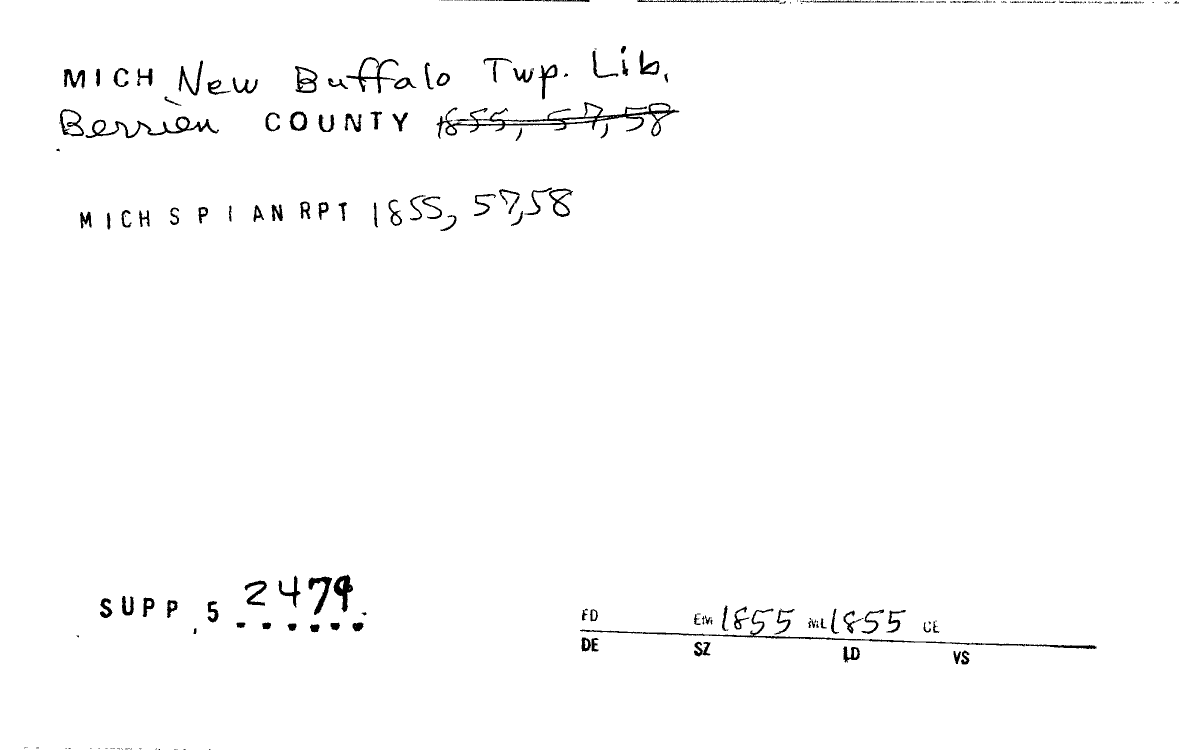 MICH New Buffalo Twp. Lib.
Berrien COUNTY 1855, 57, 58
MICH SPI AN RPT 1855, 57, 58
SUPP 5 2479
FD EM 1855 ML 1855 CE
DE SZ LD VS